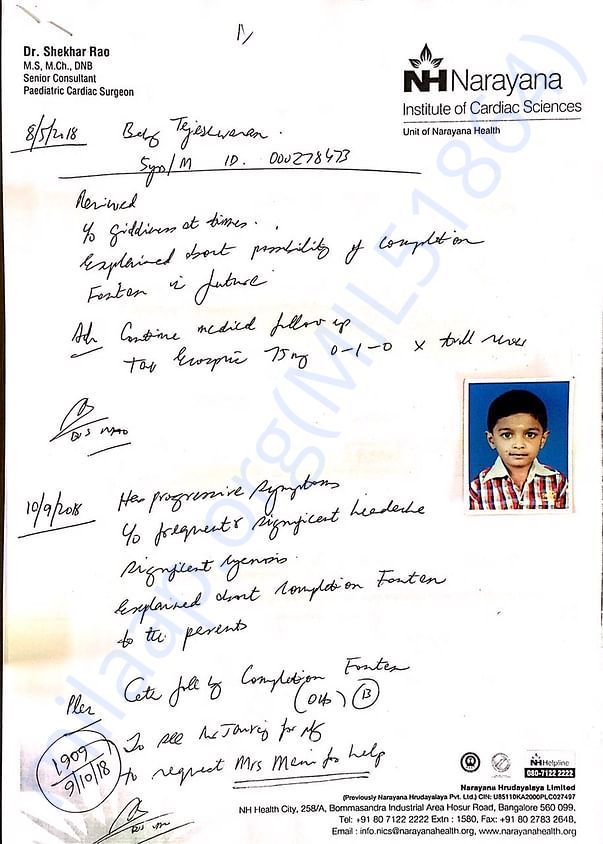 Dr. Shekhar Rao
M.S, M.Ch., DNB
Senior Consultant
Paediatric Cardiac Surgeon
NH Narayana
Institute of Cardiac Sciences
Unit of Narayana Health
8/5/2018
Tejeshwaran.
5yo/M ID. 000278473
Reviewed
giddiness at times.
Explained about possibility of completion
Fontan in future
Adv Continue medical follow up
Tab Ecosprin 75mg 0-1-0 x till review
10/9/2018
Has progressive symptoms
frequent & significant headache
significant cyanosis
Explained about completion Fontan
to the parents
Plan Cath foll by Completion Fontan
(B)
1909
9/10/18
To see for
to request Mrs for help
milaap.org(MIL51864)
NH Helpline
080-7122 2222
Narayana Hrudayalaya Limited
(Previously Narayana Hrudayalaya Pvt. Ltd.) CIN: U85110KA2000PLC027497
NH Health City, 258/A, Bommasandra Industrial Area Hosur Road, Bangalore 560 099.
Tel: +91 80 7122 2222 Extn : 1580, Fax: +91 80 2783 2648,
Email : info.nics@narayanahealth.org, www.narayanahealth.org